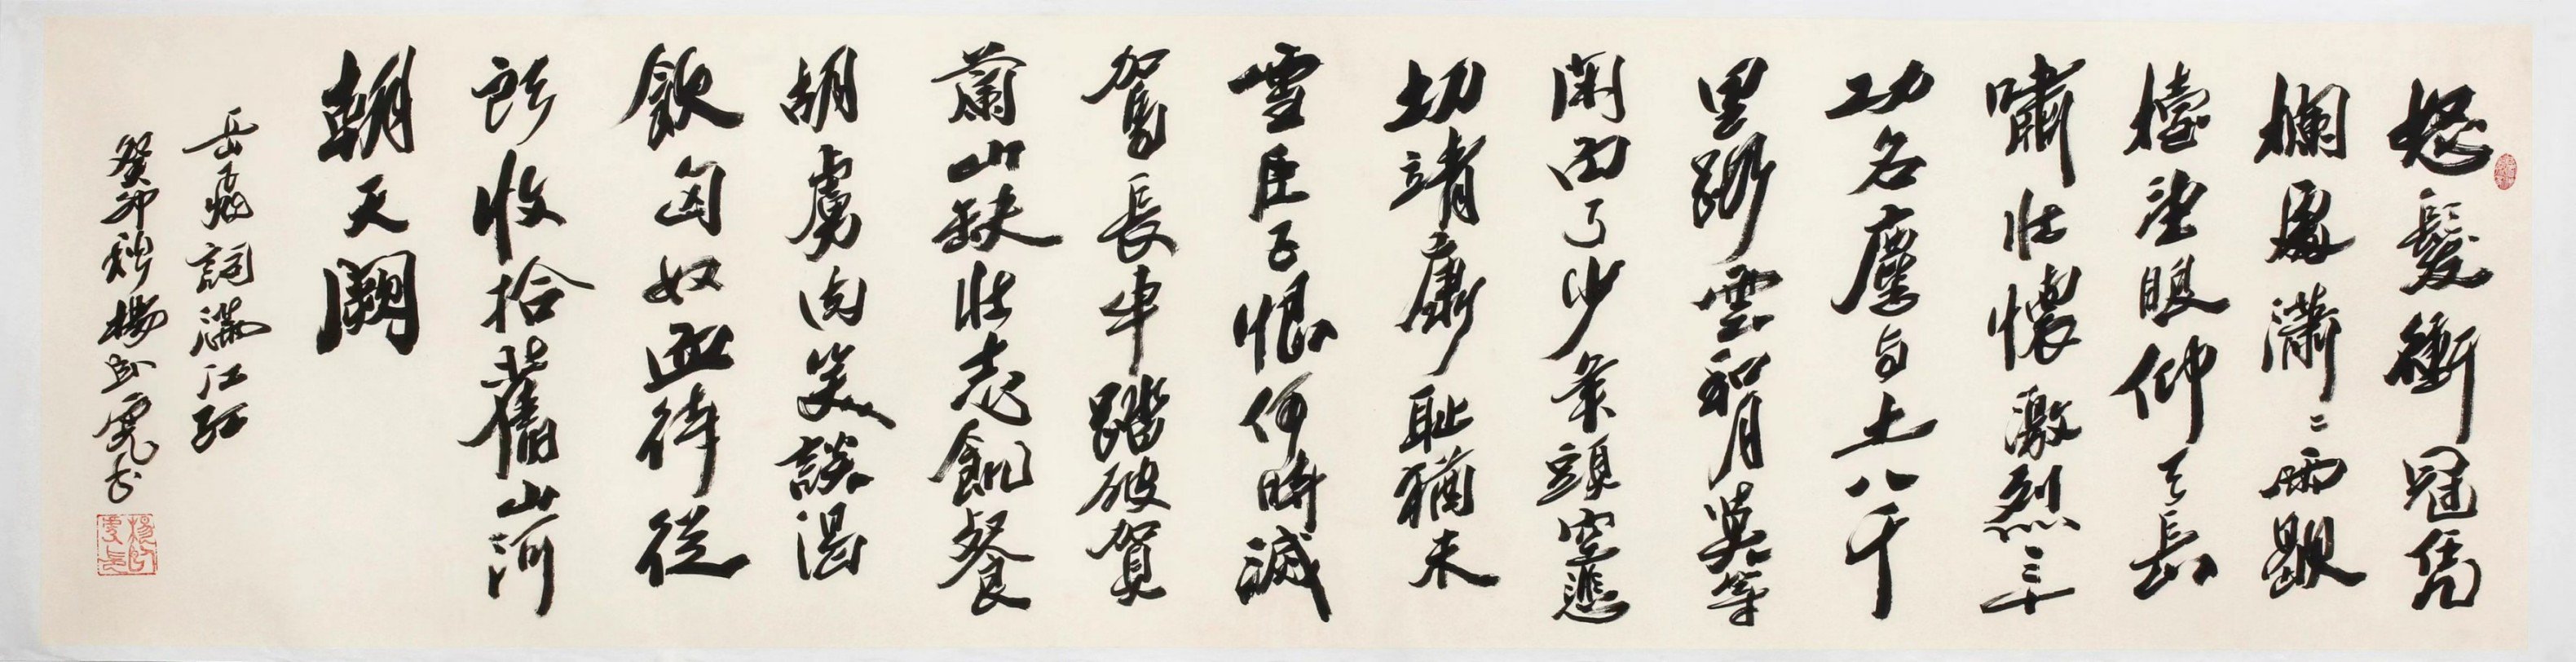 怒髮衝冠凭
欄處瀟〻雨歇
擡望眼仰天長
嘯壯懷激烈三十
功名塵與土八千
里路雲和月莫等
閑白了少年頭空悲
切靖康恥猶未
雪臣子恨何時滅
駕長車踏破賀
蘭山缺壯志飢餐
胡虜肉笑談渴
飲匈奴血待從
頭收拾舊山河
朝天闕
岳飛詞滿江紅
癸卯秋楊卧虎書